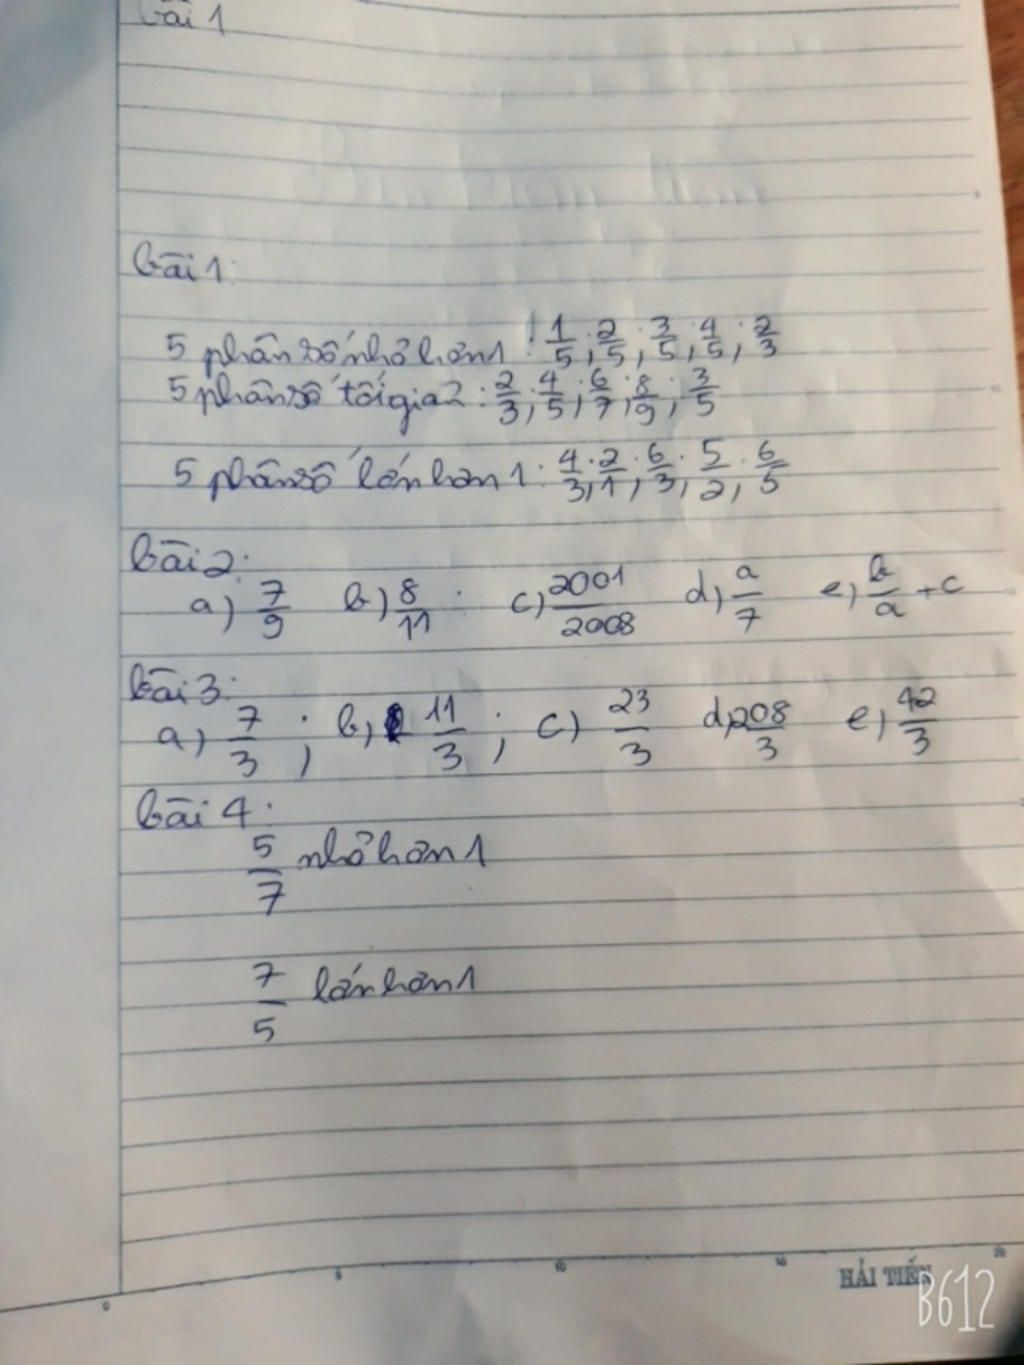 bài 1
bài 1:
5 phân số nhỏ hơn 1: 1/5; 2/5; 3/5; 4/5; 2/3
5 phân số tối giản: 2/3; 4/5; 6/7; 8/9; 3/5
5 phân số lớn hơn 1: 4/3; 2/1; 6/3; 5/2; 6/5
bài 2:
a) 7/9 b) 8/11 c) 2001/2008 d) a/7 e) b/a + c
bài 3:
a) 7/3; b) 11/3; c) 23/3 d) 208/3 e) 42/3
bài 4:
5/7 nhỏ hơn 1
7/5 lớn hơn 1
0 5 10 15 20
HẢI TIẾN
B612